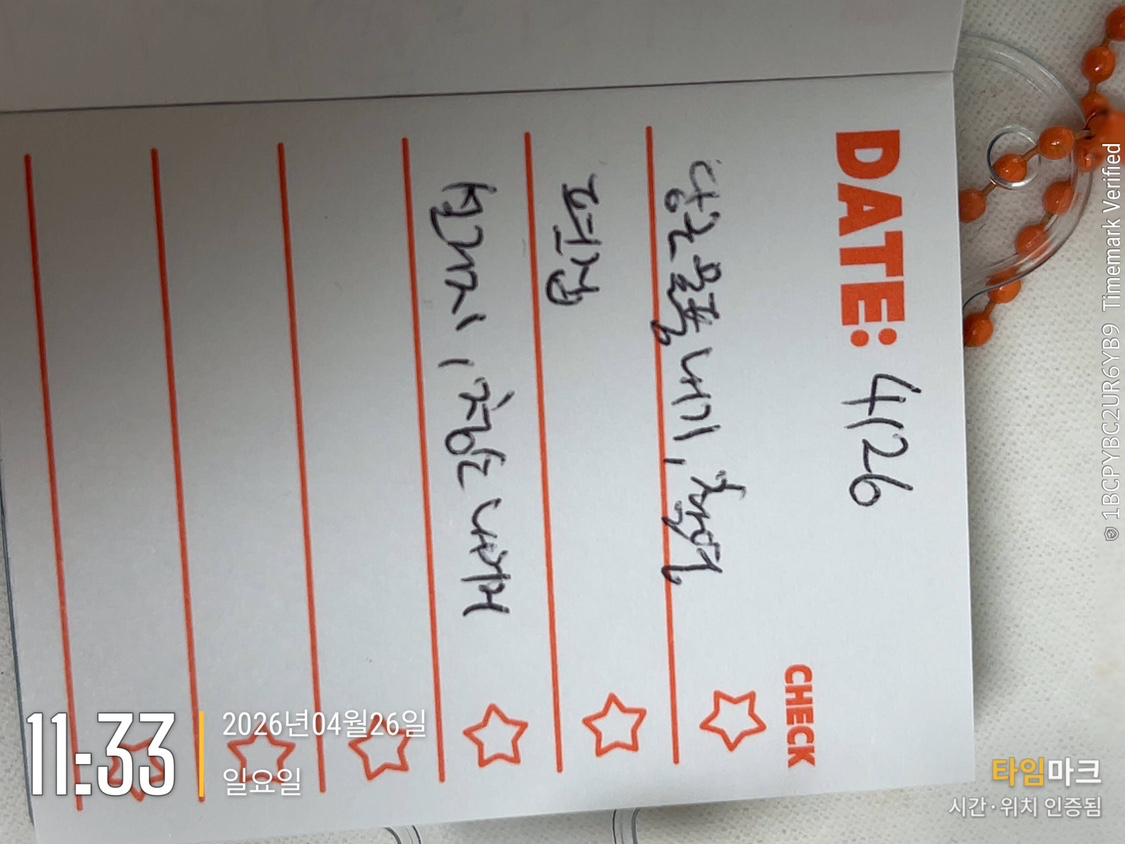 DATE: 4/26
CHECK
당근 물품 내기, 촬영
편집
설거지, 청소, 내꺼
11:33
2026년04월26일
일요일
타임마크
시간·위치 인증됨
© 1BCPYBC2UR6YB9 Timemark Verified